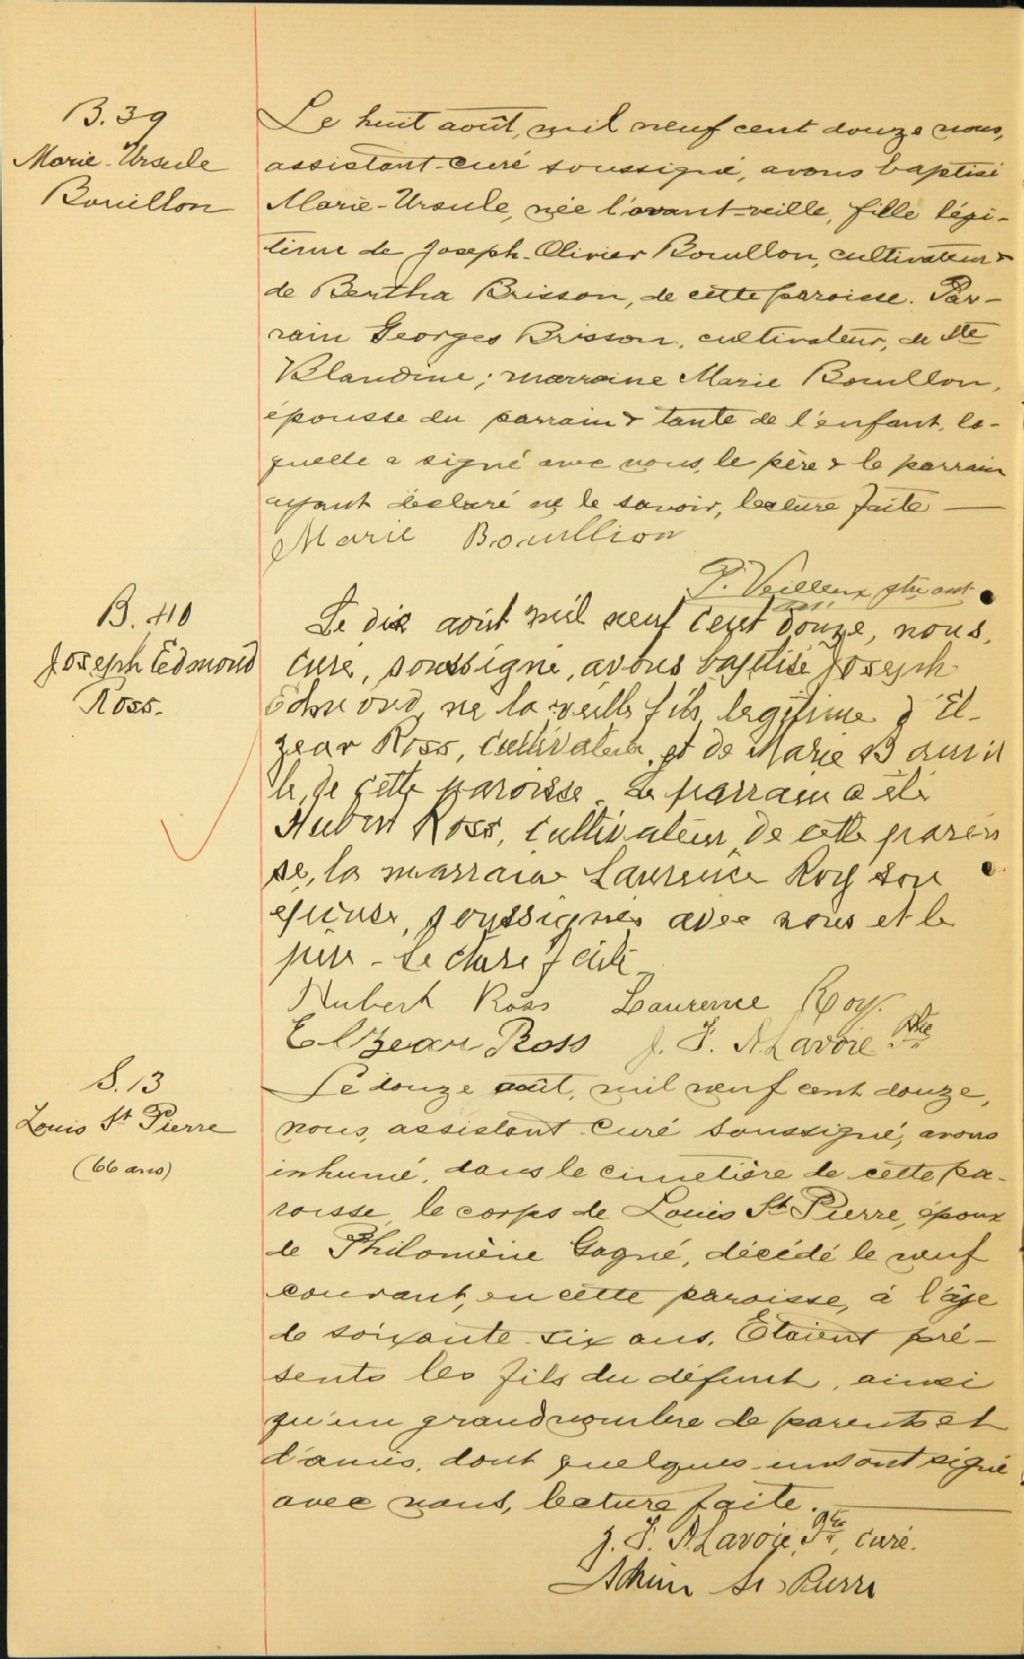 B. 39
Marie-Ursule
Bouillon
Le huit août, mil neuf cent douze nous,
assistant-curé soussigné, avons baptisé
Marie-Ursule, née l'avant-veille, fille légi-
time de Joseph-Olivier Bouillon, cultivateur &
de Bertha Brisson, de cette paroisse. Par-
rain Georges Brisson, cultivateur, de Ste
Blandine; marraine Marie Bouillon,
épousse du parrain & tante de l'enfant, la-
quelle a signé avec nous, le père & le parrain
ayant déclaré ne le savoir, lecture faite
Marie Bouillion
P. Veilleux ptre asst
B. 40
Joseph Edmond
Ross.
Le dix août mil neuf cent douze, nous,
curé, soussigné, avons baptisé Joseph
Edmond, né la veille fils légitime d'El-
zear Ross, cultivateur, et de Marie
le, de cette paroisse. Le parrain a été
Hubert Ross, cultivateur, de cette parois
se, la marraine Laurence Roy son
épouse, soussignés avec nous et le
père - Lecture faite
Hubert Ross Laurence Roy.
Elzear Ross J. F. A Lavoie Ptre
S. 13
Louis St Pierre
(66 ans)
Le douze août, mil neuf cent douze,
nous, assistant-curé soussigné, avons
inhumé, dans le cimetière de cette pa-
roisse, le corps de Louis St Pierre, époux
de Philomène Gagné, décédé le neuf
courant, en cette paroisse, à l'âge
de soixante-six ans. Etaient pré-
sents les fils du défunt, ainsi
qu'un grand nombre de parents et
d'amis, dont quelques-uns ont signé
avec nous, lecture faite.
J. F. A Lavoie, Ptre, curé.
St Pierre